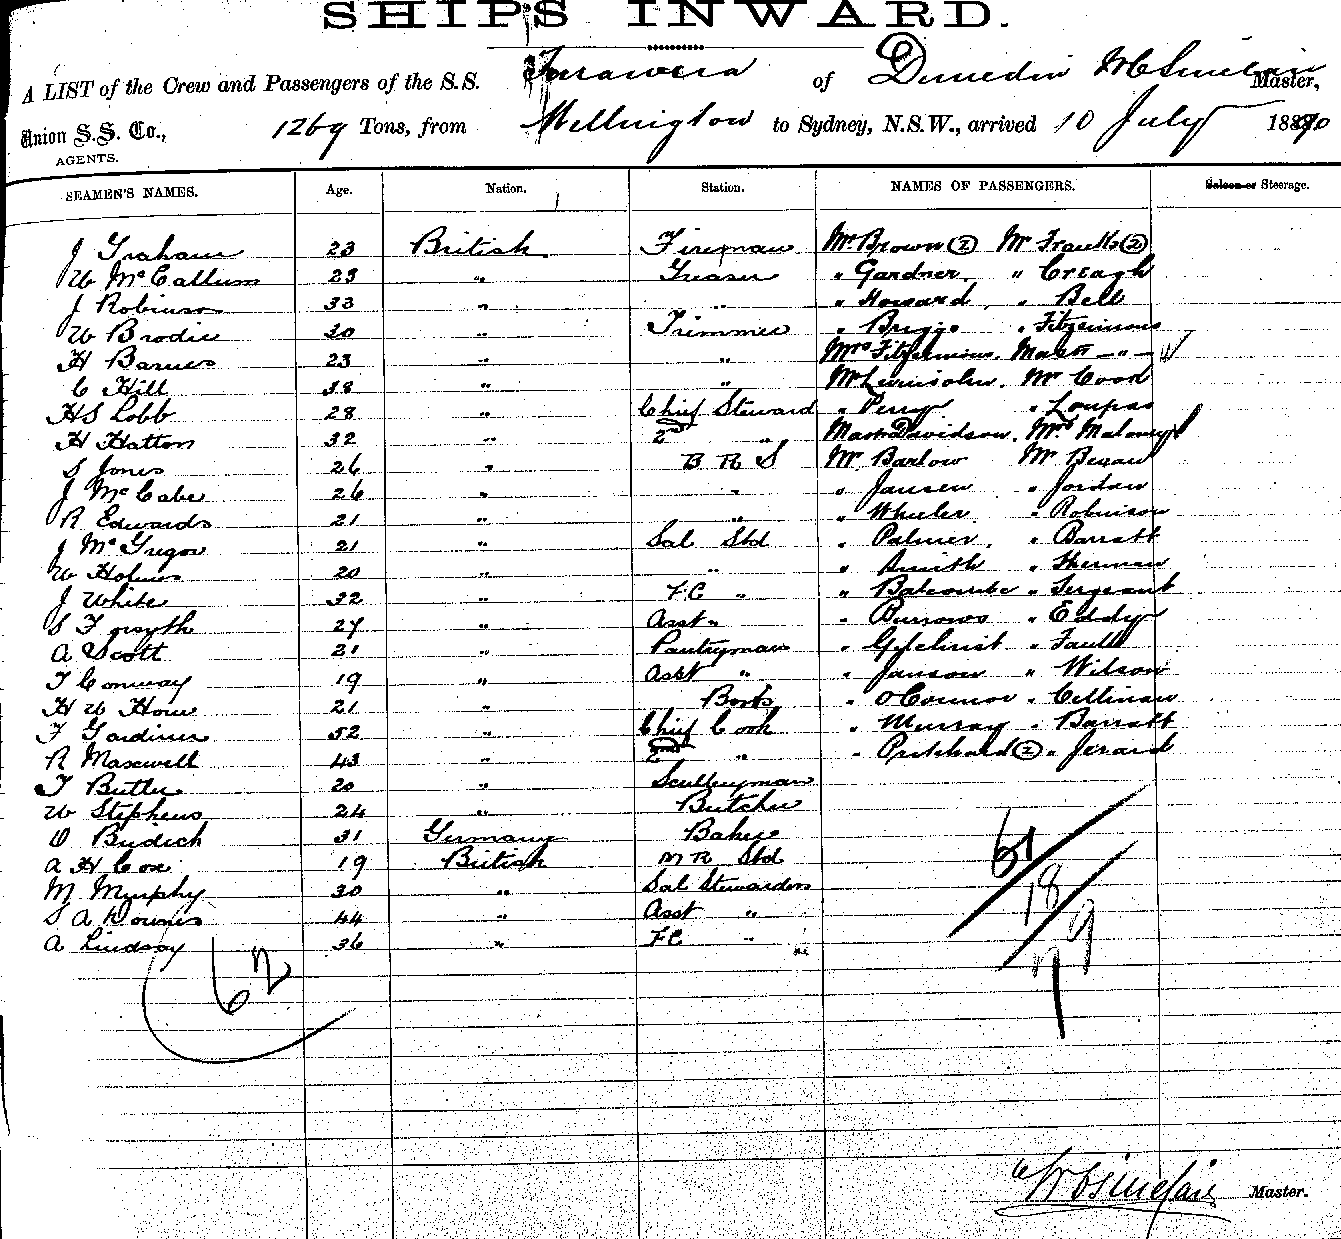 SHIPS INWARD.
A LIST of the Crew and Passengers of the S.S. Tarawera of Dunedin McSinclair Master,
Union S.S. Co., 1269 Tons, from Wellington to Sydney, N.S.W., arrived 10 July 1890
AGENTS.
SEAMEN'S NAMES. Age. Nation. Station. NAMES OF PASSENGERS. Saloon or Steerage.
J Graham 23 British Fireman Mr Brown (2) Mr Franks (2)
W McCallum 23 " Greaser " Gardner " Creagh
J Robinson 33 " " " Howard " Bell
W Brodie 30 " Trimmer " Briggs " Fitzsimons
H Barnes 23 " " Mrs Fitzsimons. Mastr - " -
C Hill 38 " " Mr Levinsohn. Mr Cood
HS Lobb 28 " Chief Steward " Perry " Loupas
H Hatton 32 " 2nd " Mastr Davidson. Mrs Maloney
S Jones 26 " B R S Mr Barlow Mr Beran
J McCabe 26 " " " Jansen " Jordan
R Edwards 21 " " " Wheeler " Robinson
J McGregor 21 " Sal Std " Palmer. " Barratt
W Holmes 20 " " " Smith " Sherman
J White 32 " FC " " Balcombe " Sergeant
S Forsyth 27 " Asst " " Burrows " Eddy
A Scott 21 " Pantryman " Gilchrist " Faull
T Conway 19 " Asst " " Janson " Wilson
H W Howe 21 " Boots " O'Connor " Cullinan
F Gardiner 52 " Chief Cook " Murray " Barratt
R Maxwell 43 " 2nd " " Pritchard (2) " Jerard
T Butler 20 " Sculleryman
W Stephens 24 " Butcher
O Budich 31 Germany Baker
A H Cox 19 British M R Std
M Murphy 30 " Sal Stewardess
S A Downes 44 " Asst "
A Lindsay 36 " FC "
61
18
9
62
Sinclair Master.